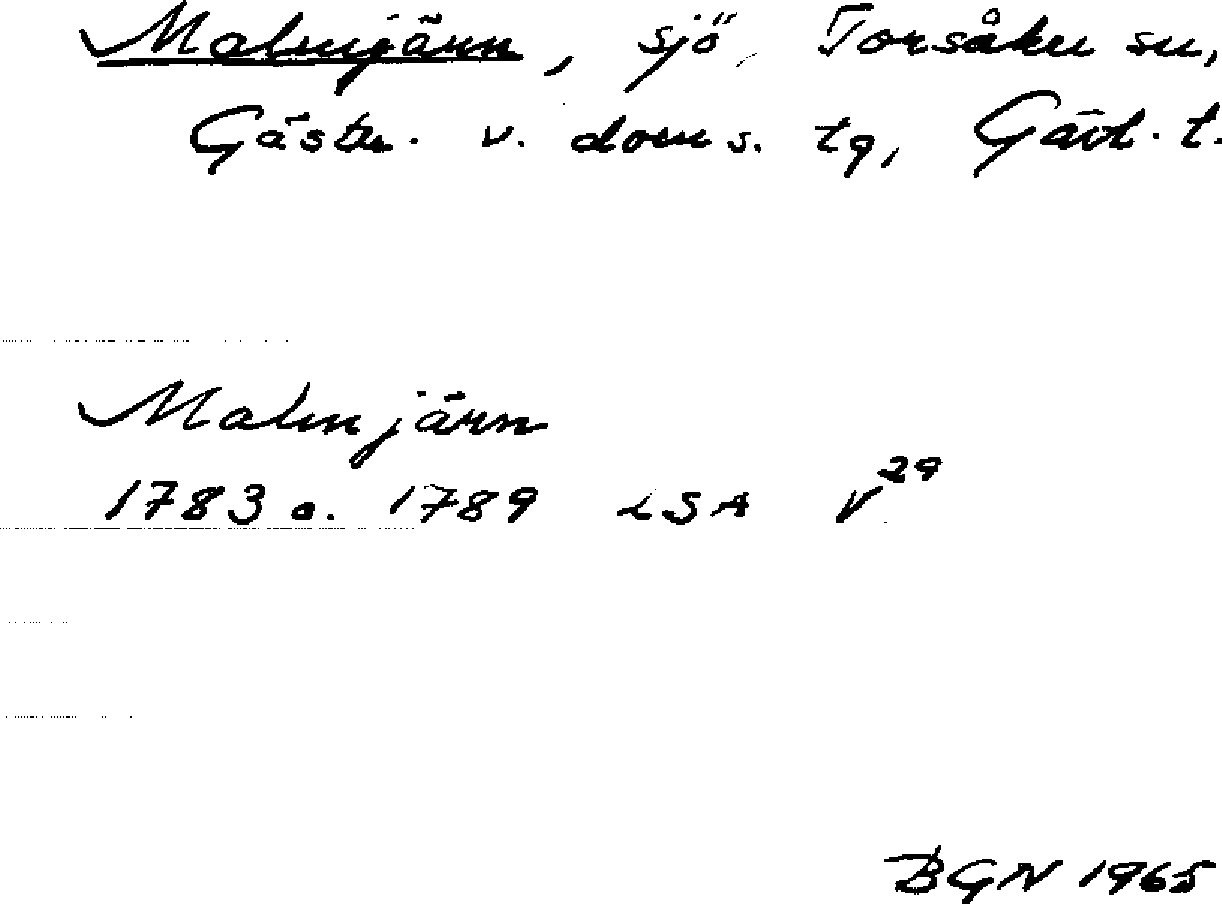 Malmjärn, sjö, Torsåker sn,
Gästr. v. doms. tg, Gävl. l.
Malmjärn
1783 o. 1789 LSA V29
BGN 1965